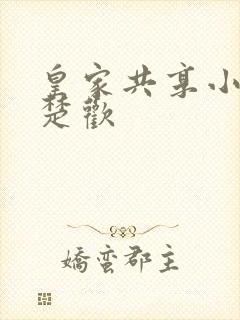 皇家共享小
楚歡
嬌蠻郡主